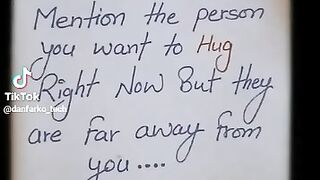 Mention the person
you want to Hug
Right Now But they
are far away from
you....
TikTok
@danfarko_tech